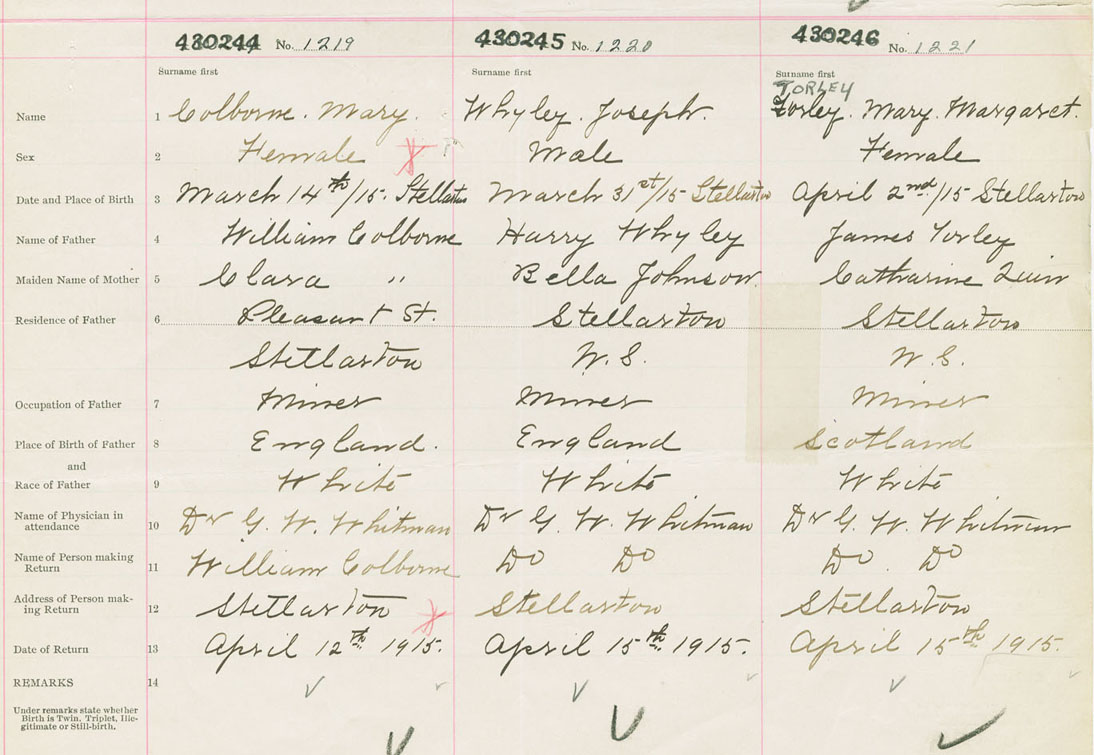 430244 No. 1219 430245 No. 1220 430246 No. 1221
Surname first Surname first Surname first
TORLEY
Name 1 Colborne. Mary. Whyley. Joseph. Torley. Mary. Margaret.
Sex 2 Female Male Female
Date and Place of Birth 3 March 14th/15. Stellarton March 31st/15 Stellarton April 2nd/15 Stellarton
Name of Father 4 William Colborne Harry Whyley James Torley
Maiden Name of Mother 5 Clara " Bella Johnson. Catharine Quin
Residence of Father 6 Pleasant St. Stellarton Stellarton
Stellarton N.S. N.S.
Occupation of Father 7 Miner Miner Miner
Place of Birth of Father 8 England. England Scotland
and
Race of Father 9 White White White
Name of Physician in
attendance 10 Dr G. W. Whitman Dr G. W. Whitman Dr G. W. Whitman
Name of Person making
Return 11 William Colborne Do Do Do. Do
Address of Person mak-
ing Return 12 Stellarton Stellarton Stellarton
Date of Return 13 April 12th 1915. April 15th. 1915. April 15th. 1915.
REMARKS 14
Under remarks state whether
Birth is Twin, Triplet, Ille-
gitimate or Still-birth.